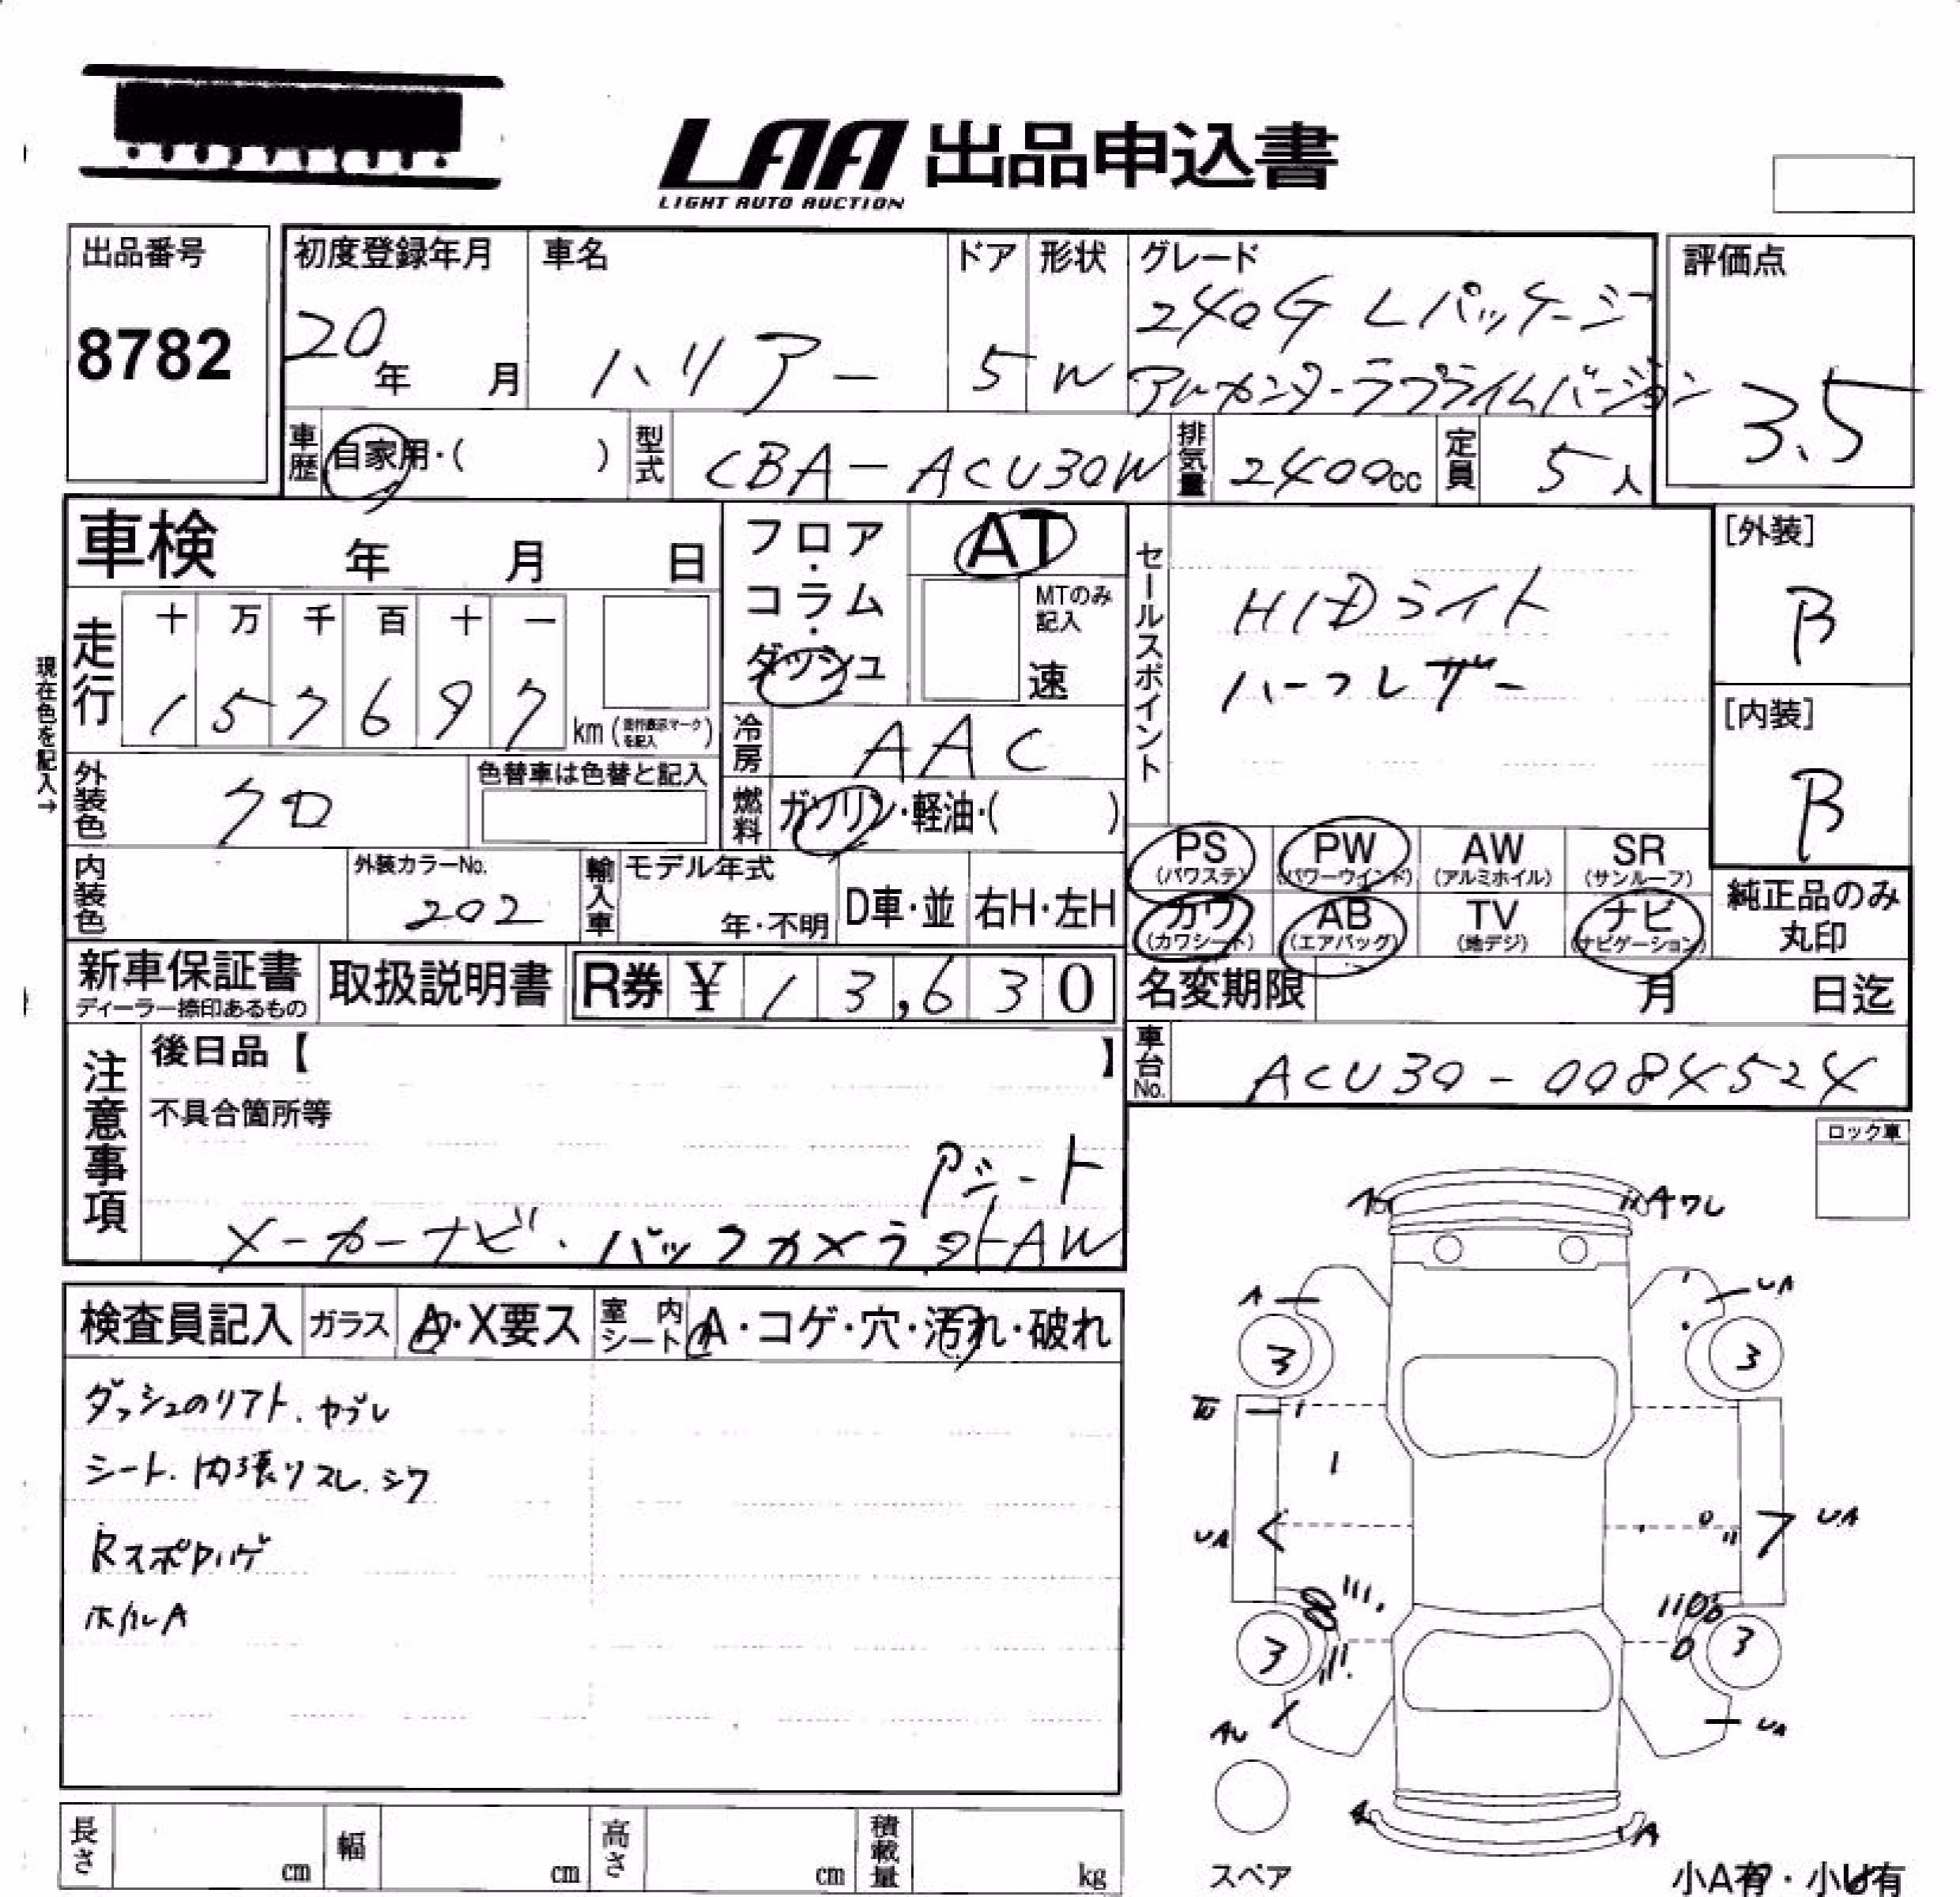 LAA 出品申込書
LIGHT AUTO AUCTION
出品番号
8782
初度登録年月
20年 月
車名
ハリアー
ドア
5
形状
W
グレード
240G Lパッケージ
アルカンターラプライムバージョン
評価点
3.5
車歴 自家用・( )
型式 CBA-ACU30W
排気量 2400cc
定員 5人
車検 年 月 日
フロア・コラム・ダッシュ
AT
MTのみ記入
速
セールスポイント
HIDライト
ハーフレザー
[外装]
B
[内装]
B
現在色を記入→
走行
十 万 千 百 十 一
1 5 7 6 9 7 km (走行表示マークを記入)
冷房 AAC
外装色 クロ
色替車は色替と記入
燃料 ガソリン・軽油・( )
内装色
外装カラーNo.
202
輸入車
モデル年式
年・不明
D車・並
右H・左H
PS (パワステ)
PW (パワーウインド)
AW (アルミホイル)
SR (サンルーフ)
カワ (カワシート)
AB (エアバッグ)
TV (地デジ)
ナビ (ナビゲーション)
純正品のみ丸印
新車保証書
ディーラー捺印あるもの
取扱説明書
R券 ¥ 13,630
名変期限 月 日迄
車台No. ACU30-0084524
注意事項
後日品【 】
不具合箇所等
Pシート
メーカーナビ・バックカメラ
AW
ロック車
検査員記入
ガラス A・X要ス
室内シート A・コゲ・穴・汚れ・破れ
ダッシュのリアト、ヤブレ
シート、内張りスレ、シワ
RスポPハゲ
ホイルA
A
Aワレ
A
UA
3
3
UA
UA
3
3
AU
UA
A
UA
スペア
小A有・小U有
長さ cm
幅 cm
高さ cm
積載量 kg